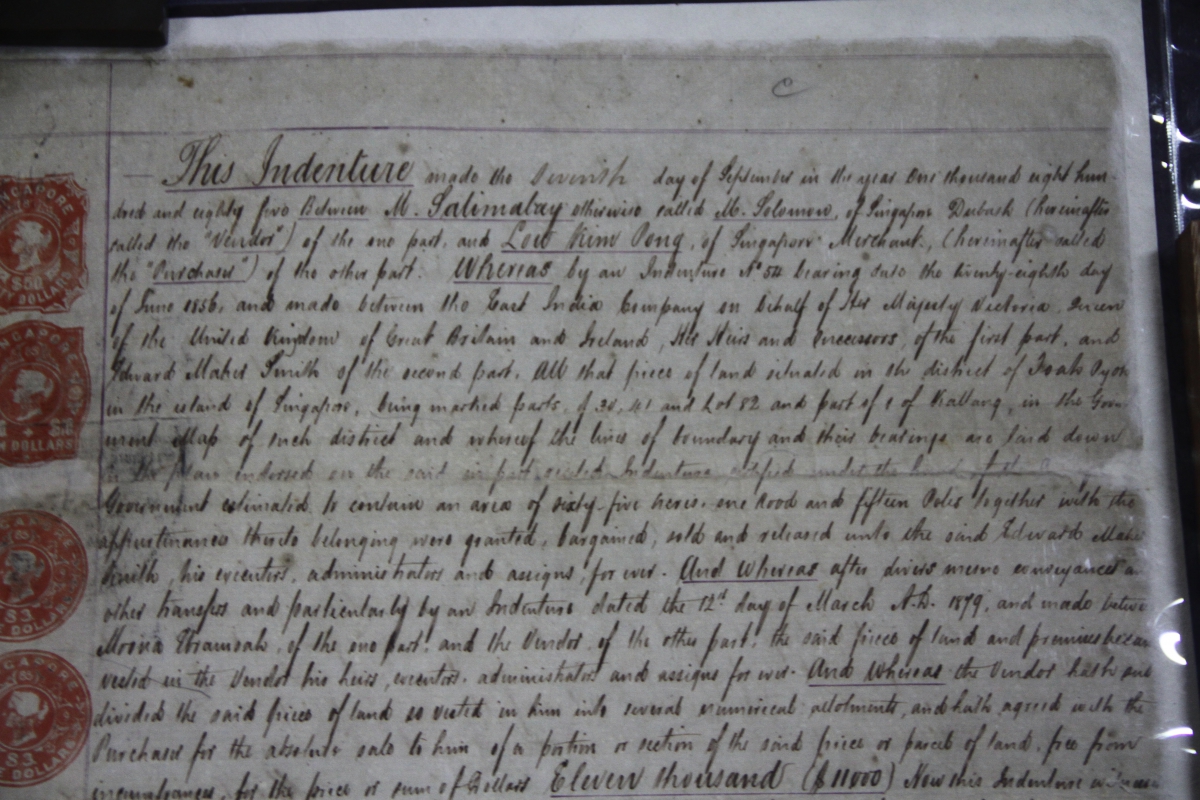 C
This Indenture made the Seventh day of September in the year One thousand eight hun-
dred and eighty five Between M. Salimabay otherwise called M. Solomon, of Singapore Dubash (hereinafter
called the "Vendor") of the one part, and Low Kim Pong, of Singapore Merchant, (hereinafter called
the "Purchaser") of the other part. Whereas by an Indenture No 54 bearing date the twenty-eighth day
of June 1856, and made between the East India Company on behalf of Her Majesty Victoria, Queen
of the United Kingdom of Great Britain and Ireland, Her Heirs and Successors, of the first part, and
Edward Maher Smith of the second part. All that piece of land situated in the district of Toah Pyoh
in the island of Singapore, being marked parts, of 30, 41 and Lot 82 and part of 1 of Kallang, in the Govern-
ment Map of such district and whereof the lines of boundary and their bearings are laid down
in the plan indorsed on the said in part recited Indenture certified under the hand of the
Government estimated to contain an area of sixty-five acres, one Rood and fifteen Poles together with the
appurtenances thereto belonging were granted, bargained, sold and released unto the said Edward Maher
Smith, his executors, administrators and assigns, for ever. And Whereas after divers mesne conveyances and
other transfers and particularly by an Indenture dated the 12th day of March A.D. 1879, and made between
Moona Ebramsah, of the one part, and the Vendor, of the other part, the said piece of land and premises became
vested in the Vendor his heirs, executors, administrators and assigns for ever. And Whereas the Vendor hath sub
divided the said piece of land so vested in him into several numerical allotments, and hath agreed with the
Purchaser for the absolute sale to him of a portion or section of the said piece or parcel of land, free from
incumbrances, for the price or sum of Dollars Eleven thousand ($11000) Now this Indenture witnesseth
SINGAPORE
$50
DOLLARS
SINGAPORE
DOLLARS
SINGAPORE
$3
DOLLARS
SINGAPORE
$3
DOLLARS